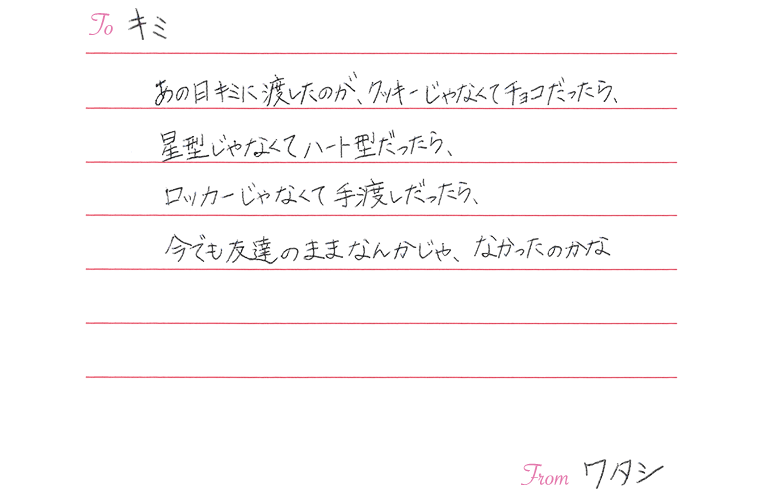 To キミ
あの日キミに渡したのが、クッキーじゃなくてチョコだったら、
星型じゃなくてハート型だったら、
ロッカーじゃなくて手渡しだったら、
今でも友達のままなんかじゃ、なかったのかな
From ワタシ